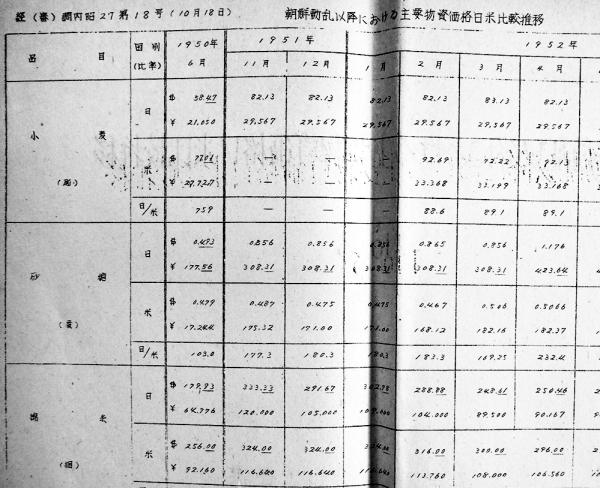 経(審)調内昭27第18号(10月18日) 朝鮮動乱以降における主要物資価格日米比較推移
品 目 国別 1950年 1951年 1952年
(比率) 6月 11月 12月 1月 2月 3月 4月
日 $ 58.47 82.13 82.13 82.13 82.13 83.13 82.13
¥ 21,050 29,567 29,567 29,567 29,567 29,567 29,567
小 麦
米 $ — — — 92.69 92.22 92.13
(瓲) ¥ 27,727 — — — 33,368 33,199 33,168
日/米 759 — — — 88.6 89.1 89.1
日 $ 0.493 0.856 0.856 0.856 0.865 0.856 1.176
砂 糖 ¥ 177.56 308.31 308.31 308.31 308.31 308.31 423.64
米 $ 0.479 0.487 0.475 0.475 0.467 0.506 0.5066
¥ 17.244 175.32 171.00 171.00 168.12 182.16 182.37
日/米 103.0 177.3 180.3 180.3 183.3 169.25 232.4
日 $ 179.93 333.33 291.67 302.78 288.88 248.61 250.46
¥ 64,776 120,000 105,000 104,000 89,500 90,167
米
米 $ 256.00 324.00 324.00 324.00 316.00 300.00 296.00
¥ 92,160 116,640 116,640 116,640 113,760 108,000 106,560